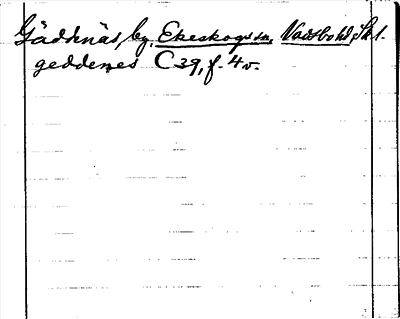 Gäddenäs, by, Ekeskogs sn, Vadsbo hd, Sk.l.
geddenes C 39, f. 4 v.